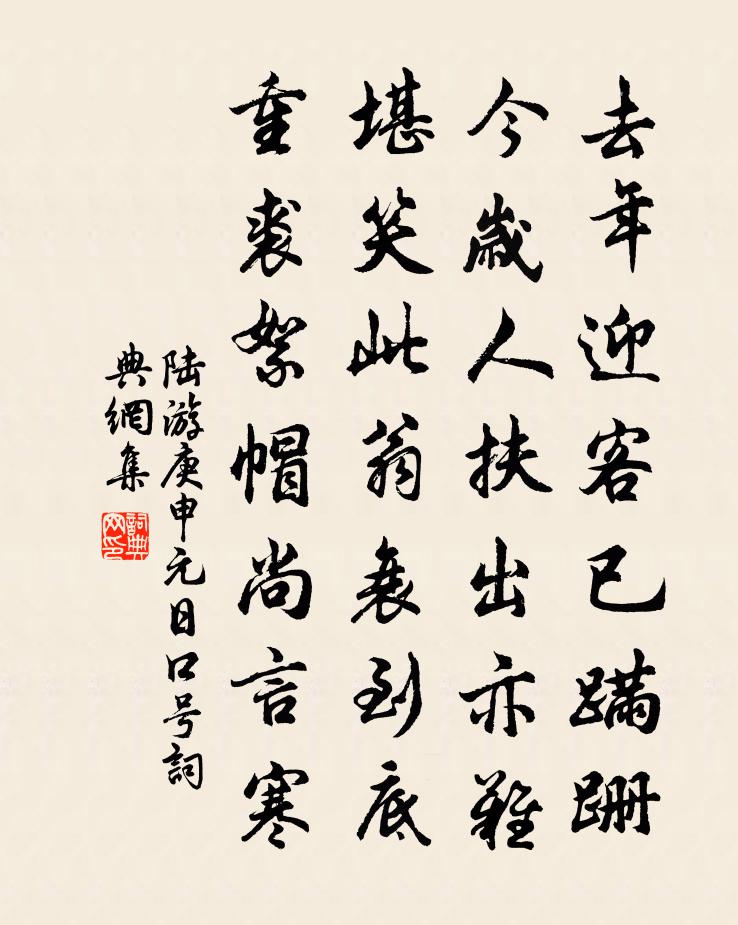 去年迎客已蹣跚
今歲人扶出亦難
堪笑此翁衰到底
重裘絮帽尚言寒
陸游庚申元日口号詞
典網集
詞典
网印